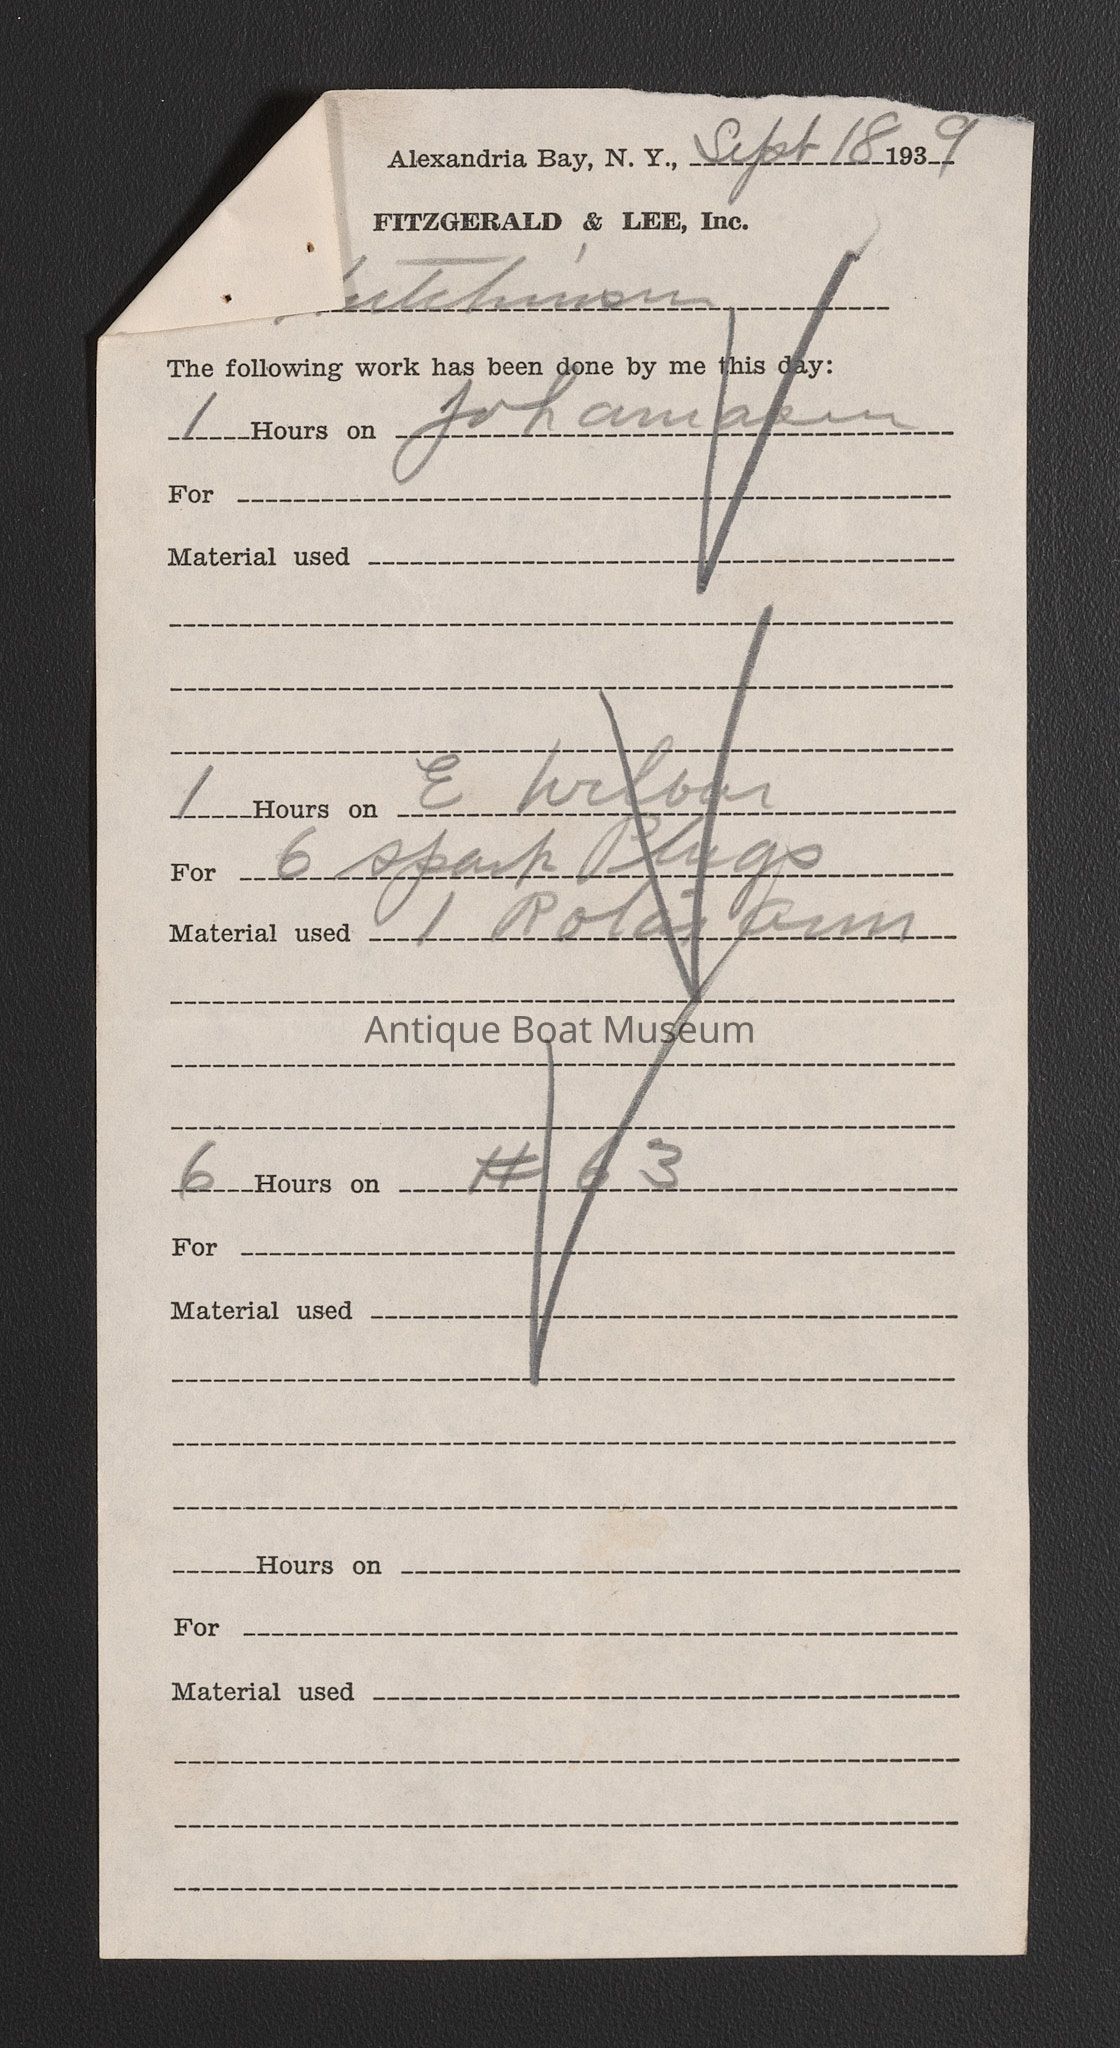 Alexandria Bay, N. Y., Sept 18 1939
FITZGERALD & LEE, Inc.
Hutchinson
The following work has been done by me this day:
1 Hours on
For
Material used
1 Hours on E Wilbur
For 6 spark Plugs
Material used 1 Rotor Arm
Antique Boat Museum
6 Hours on # 63
For
Material used
Hours on
For
Material used